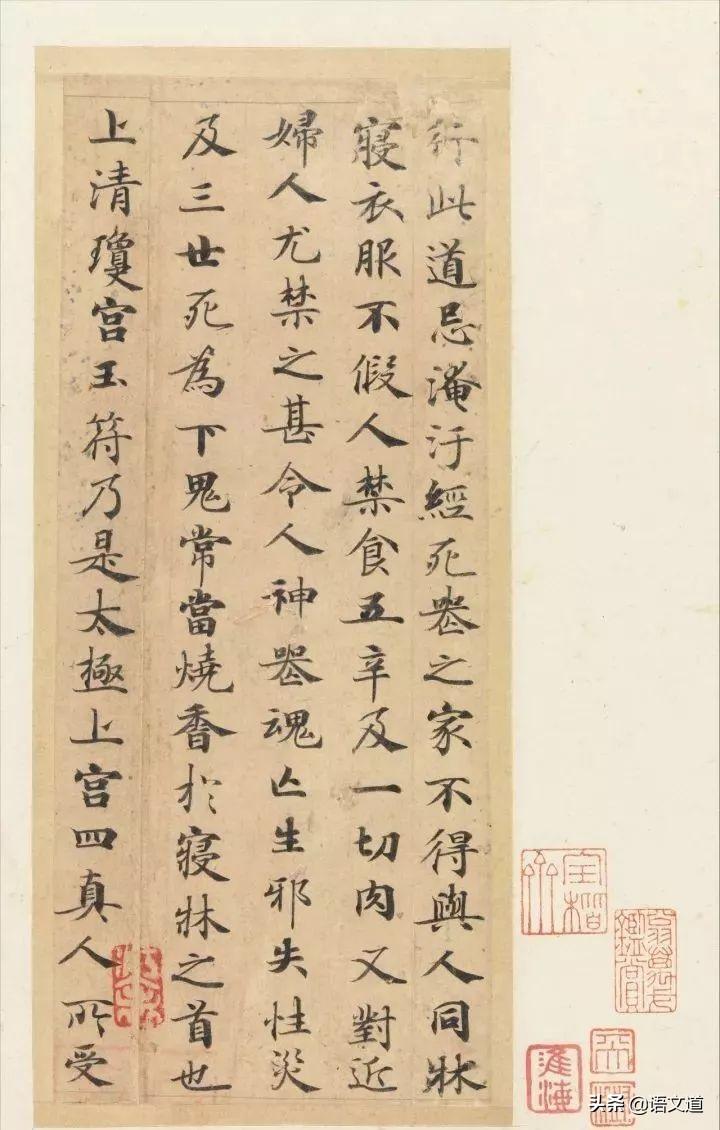 行此道忌淹汙經死喪之家不得與人同牀
寢衣服不假人禁食五辛及一切肉又對近
婦人尤禁之甚令人神喪魂亡生邪失性災
及三世死為下鬼常當燒香於寢牀之首也
上清瓊宮玉符乃是太極上宮四真人所受
頭条 @语文道